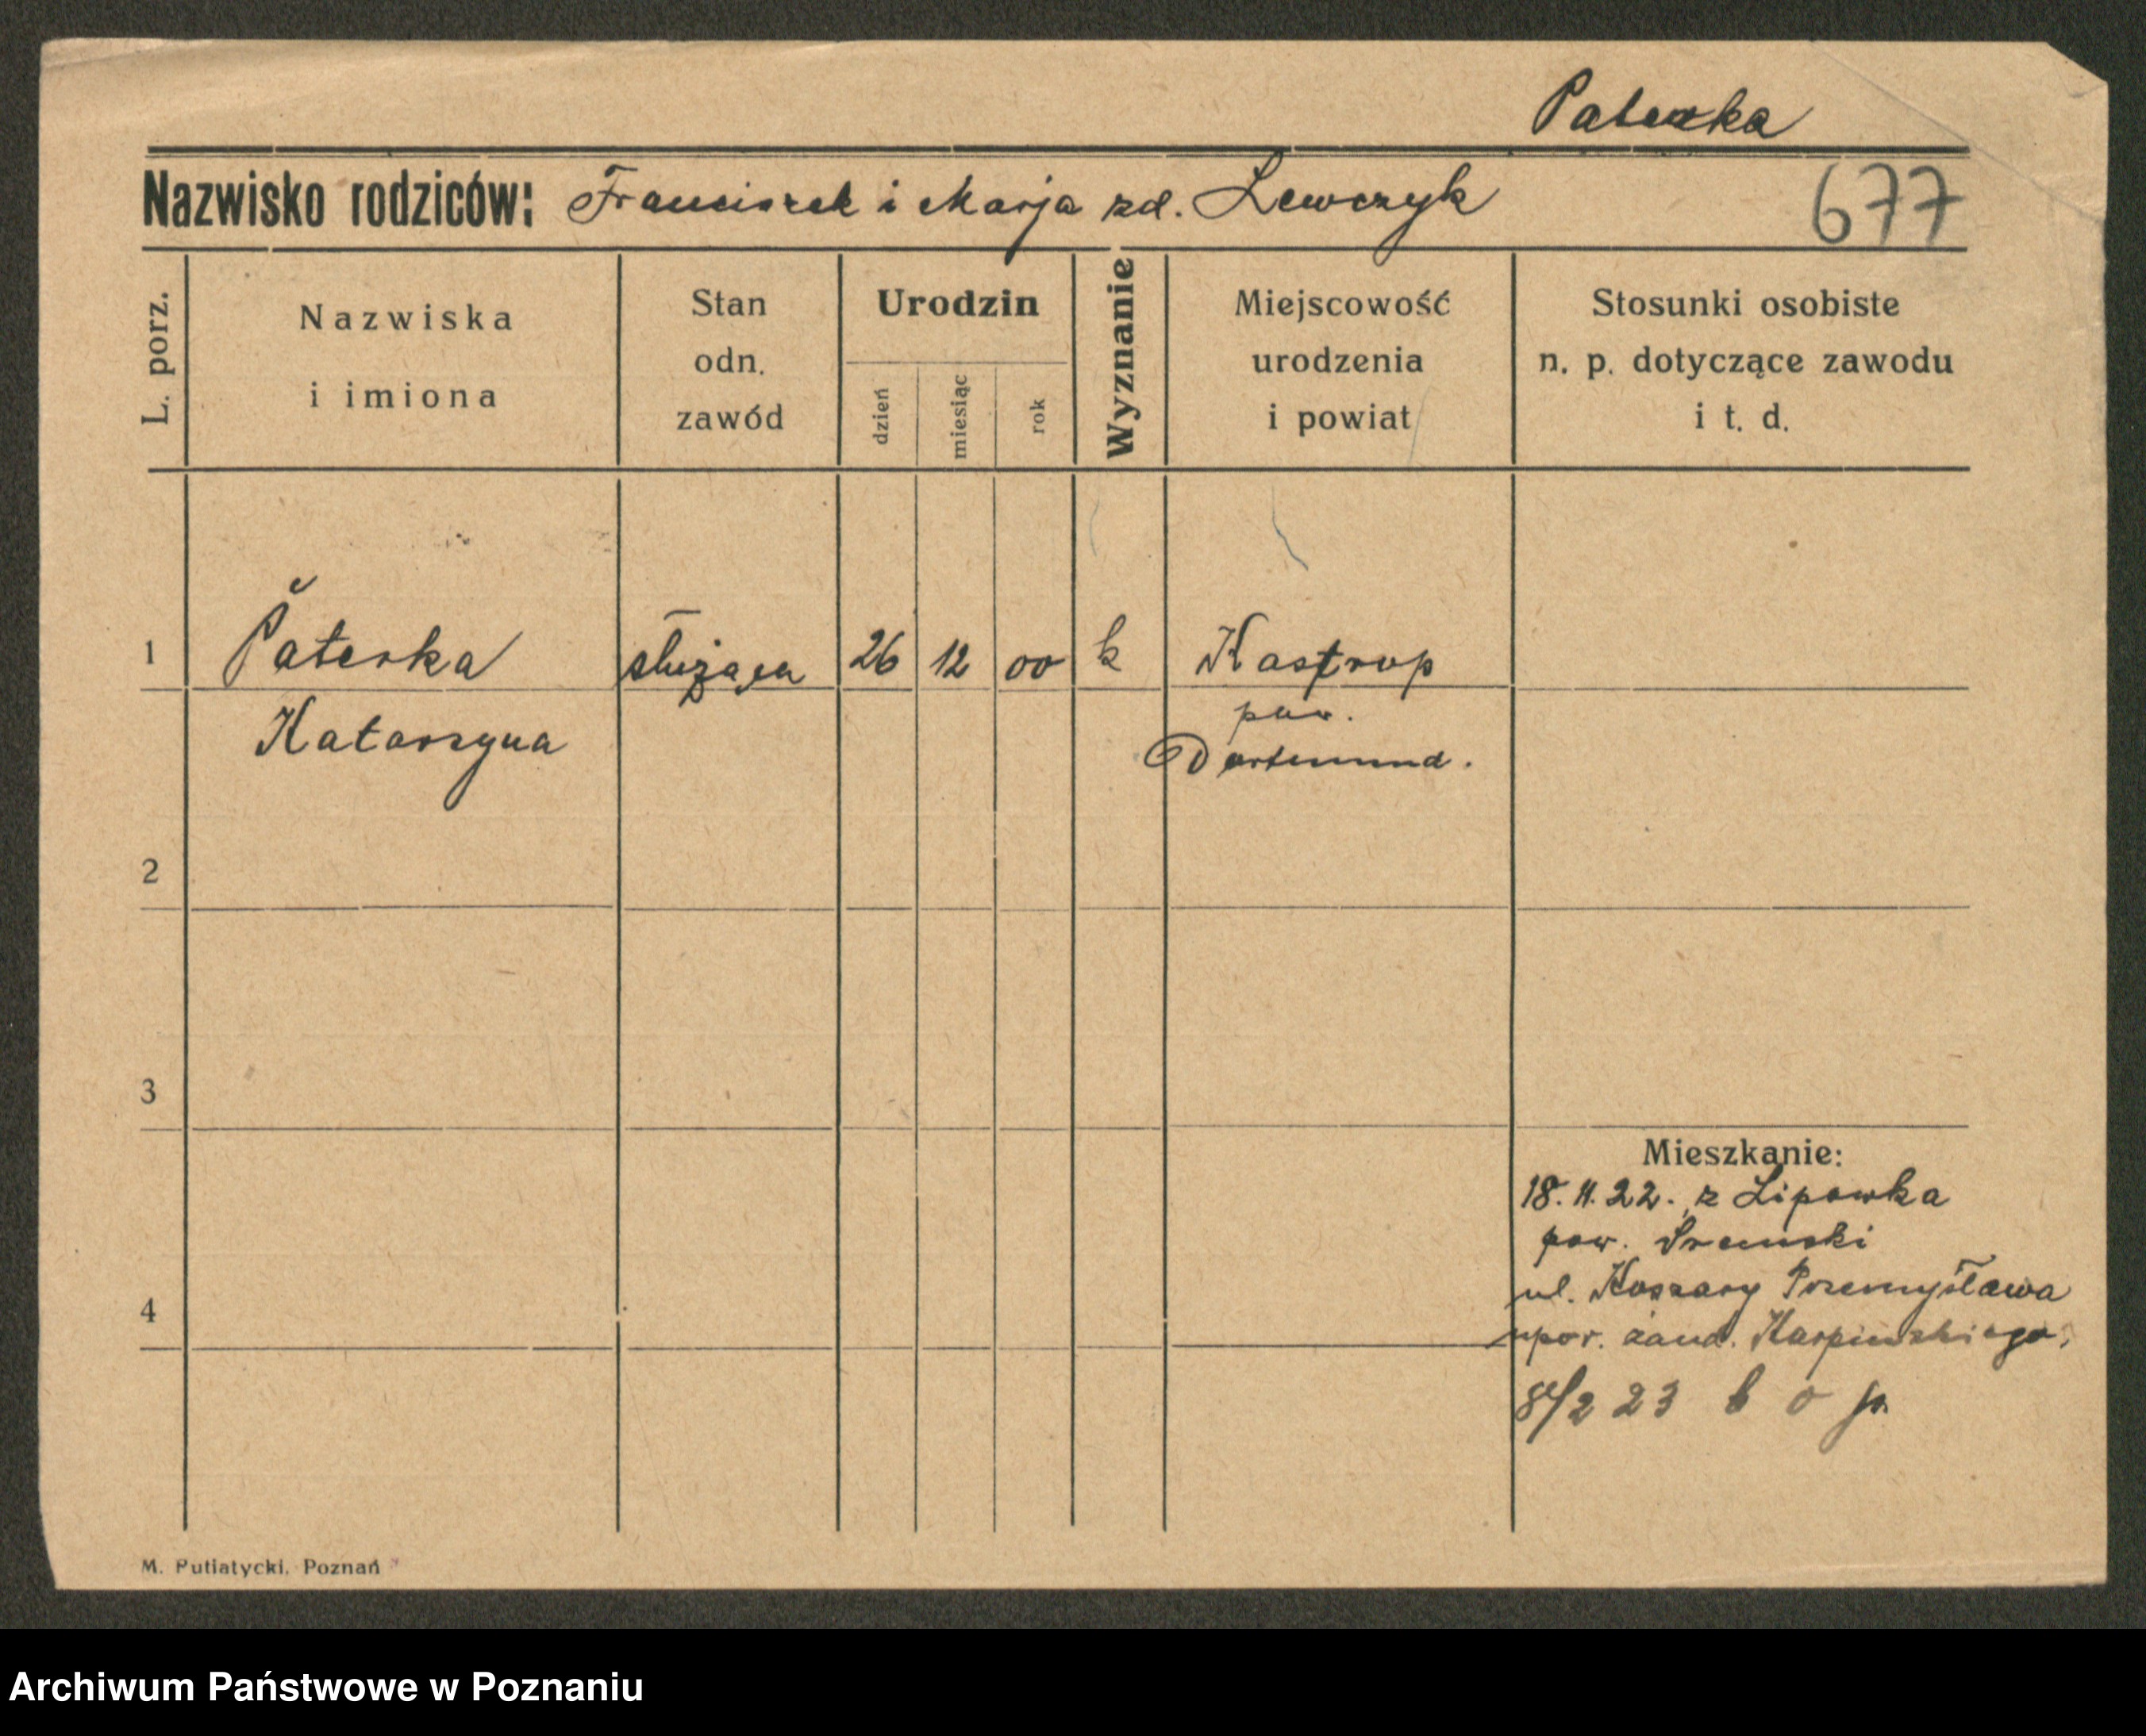 Paterka
Nazwisko rodziców: Franciszek i Marja zd. Lewczyk
677
L. porz.
Nazwiska
i imiona
Stan
odn.
zawód
Urodzin
dzień
miesiąc
rok
Wyznanie
Miejscowość
urodzenia
i powiat
Stosunki osobiste
n. p. dotyczące zawodu
i t. d.
1
Paterka
służąca
26
12
00
k
Kastrop
pow.
Katarzyna
Dortmund.
2
3
Mieszkanie:
18. 11. 22. z Lipowka
pow. Sremski
4
ul. Koszary Przemysława
upor. żand. Karpinskiego.
23
M. Putiatycki. Poznań
Archiwum Państwowe w Poznaniu